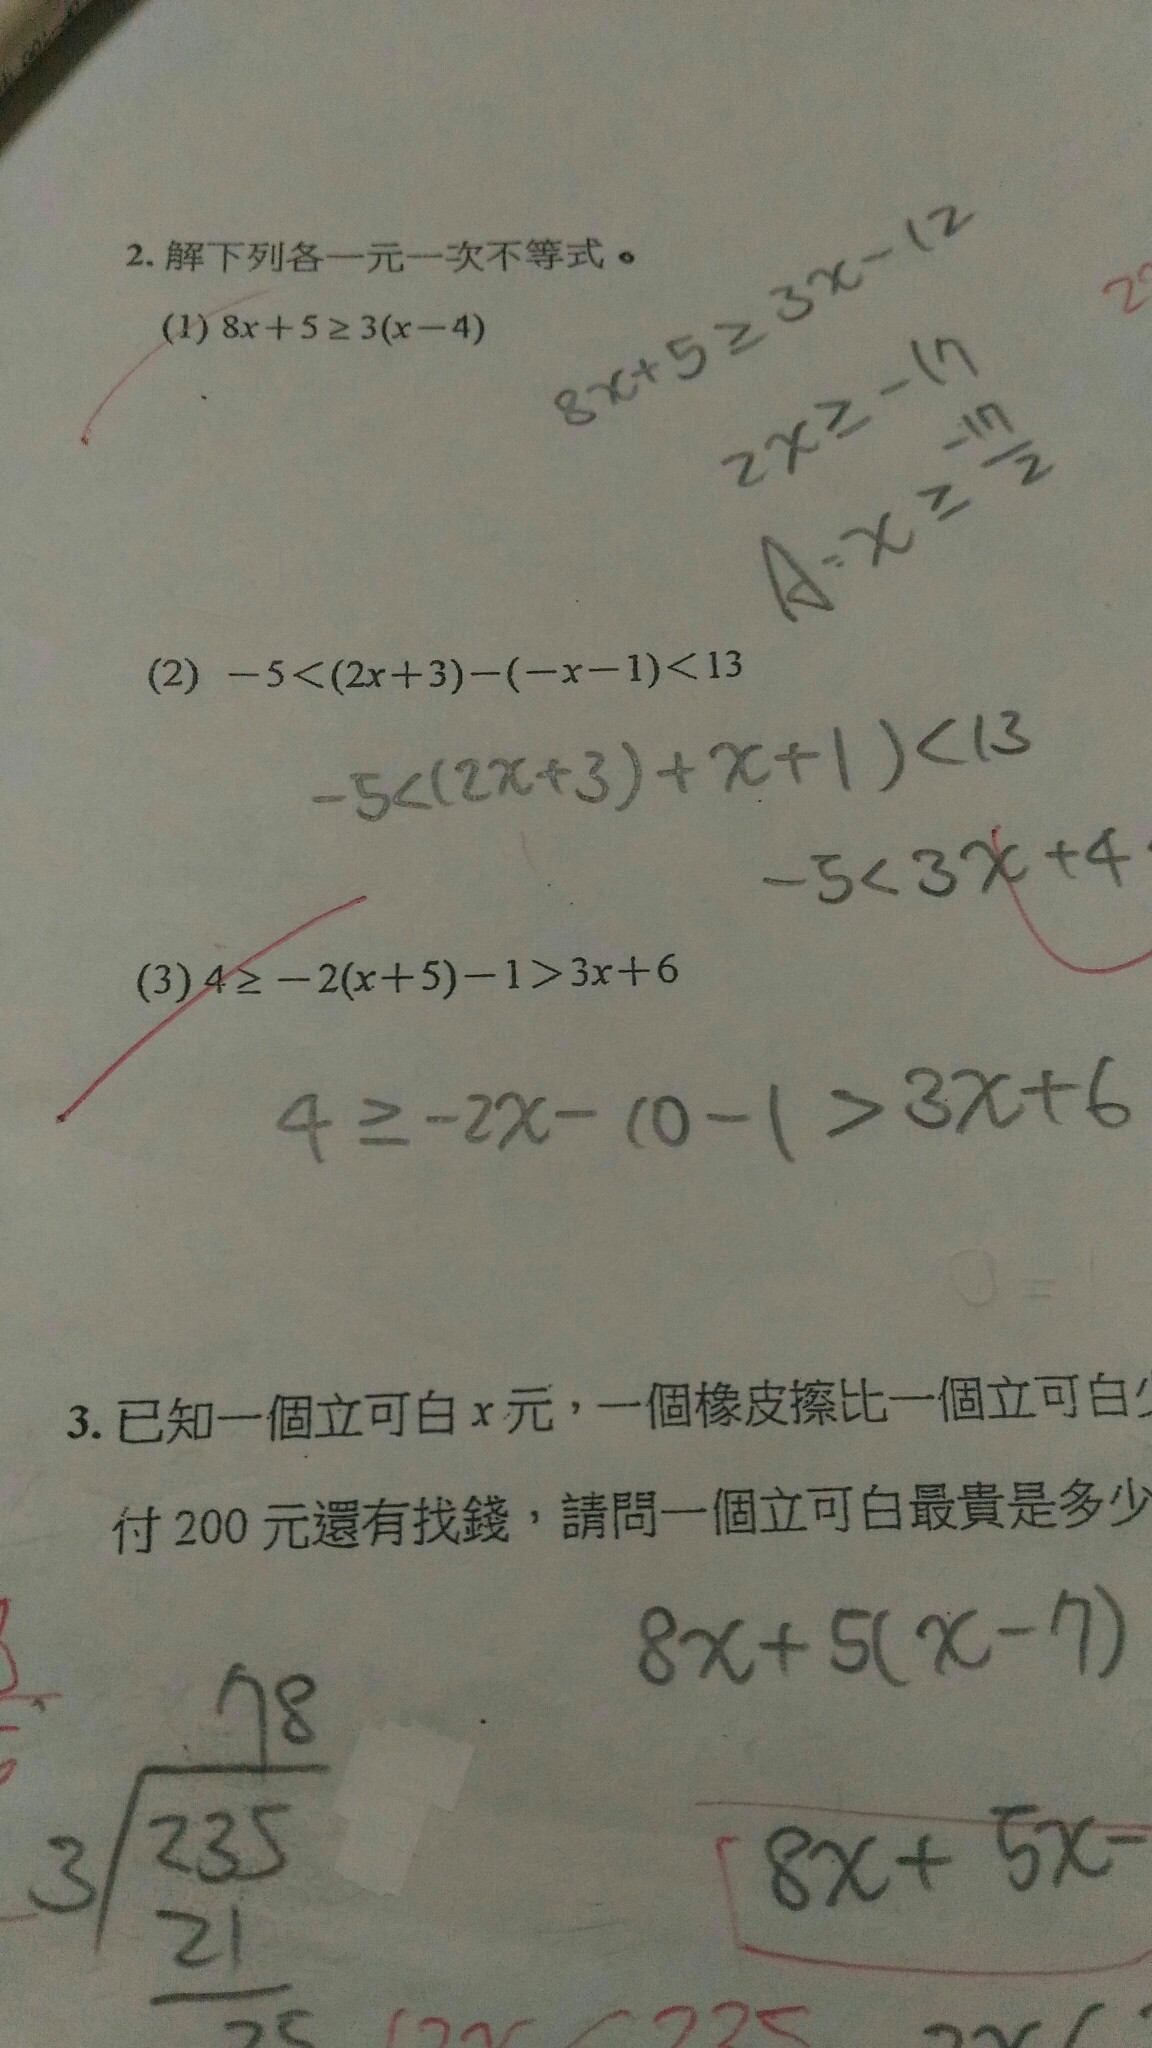 2. 解下列各一元一次不等式。
(1) 8x+5≥3(x−4)
8x+5≥3x−12
2x≥−17
A=x≥−17/2
(2) −5<(2x+3)−(−x−1)<13
−5<(2x+3)+x+1)<13
−5<3x+4
(3) 4≥−2(x+5)−1>3x+6
4≥−2x−10−1>3x+6
3. 已知一個立可白 x 元，一個橡皮擦比一個立可白少
付 200 元還有找錢，請問一個立可白最貴是多少
8x+5(x−7)
78
3 235
21
25
8x+5x−